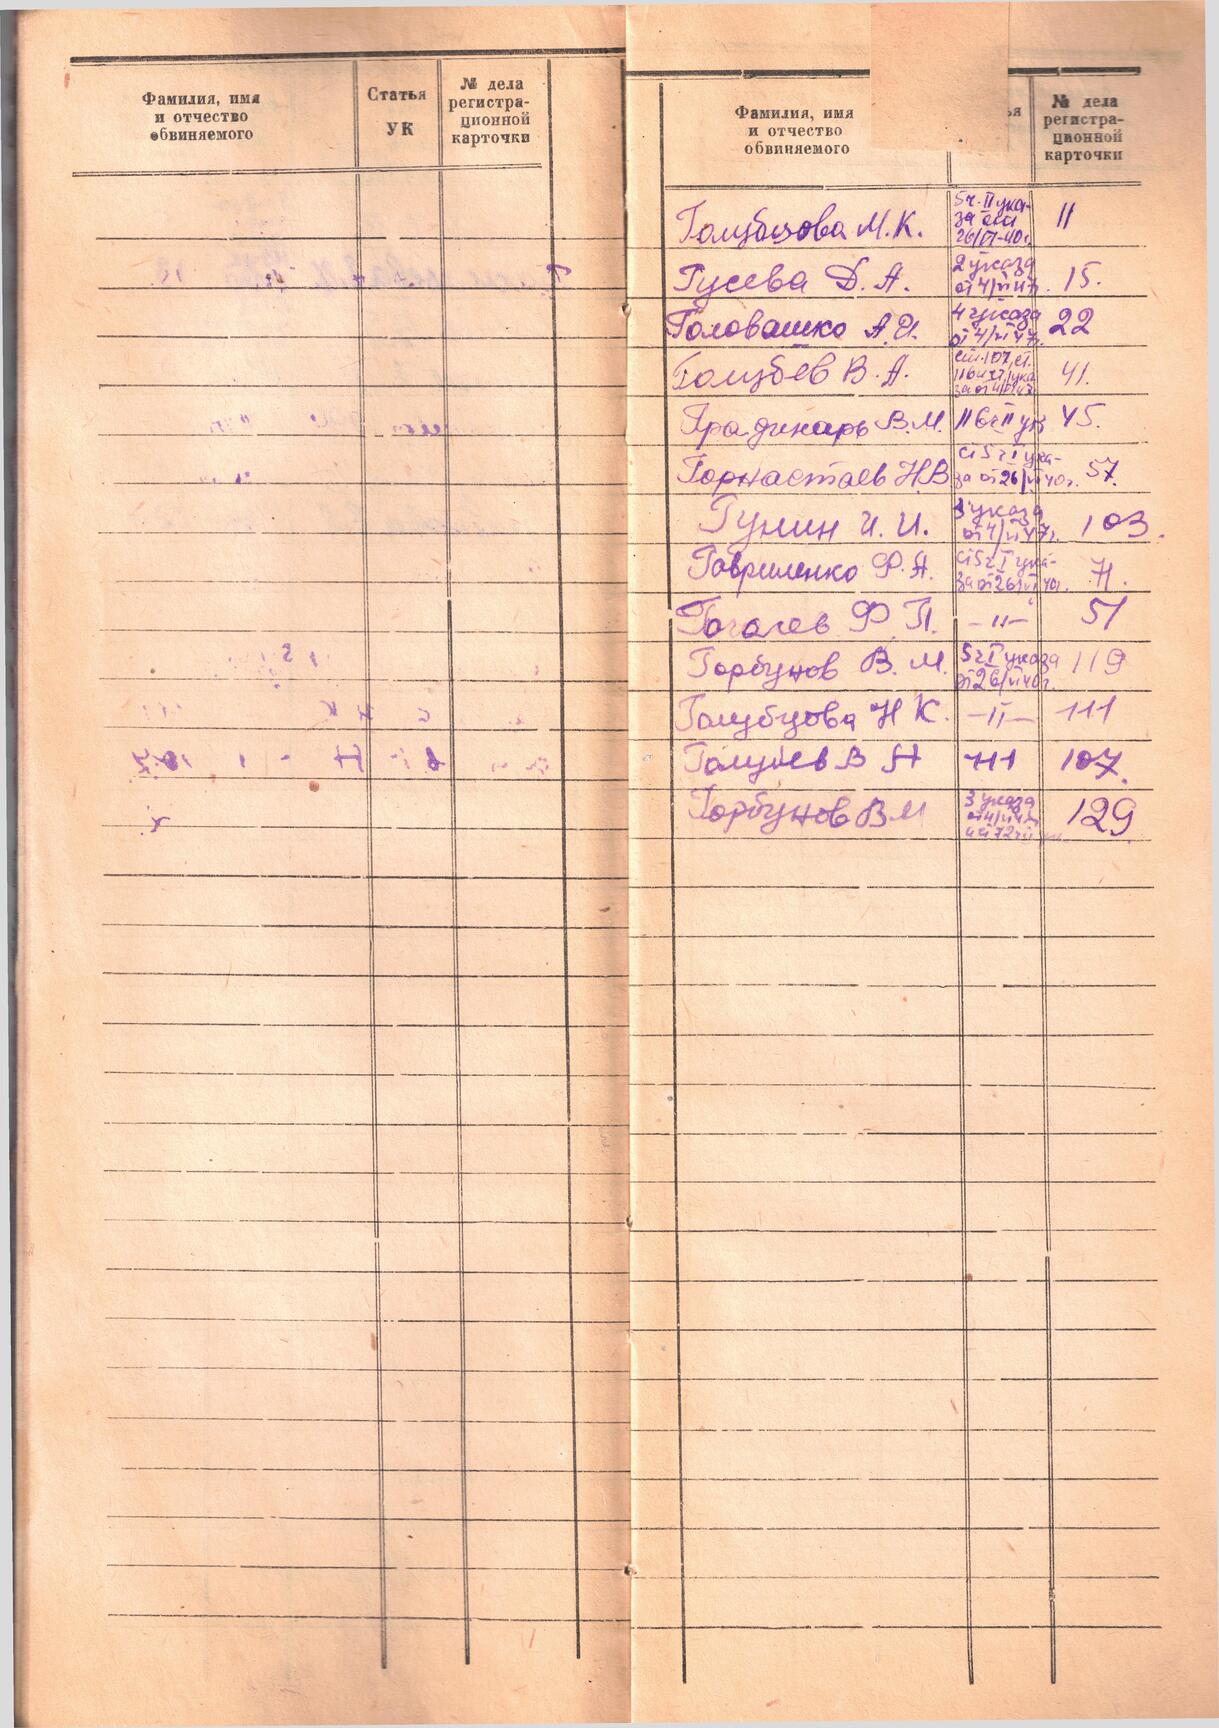 Фамилия, имя
и отчество
обвиняемого
Статья
УК
№ дела
регистра-
ционной
карточки
Фамилия, имя
и отчество
обвиняемого
ья
№ дела
регистра-
ционной
карточки
Голубцова М.К. 5 ч. II ука-
за от
26/VI-40г. 11
Гусева Д. А. 2 указа
от 4/VI 47г. 15.
Головашко А.И. 4 указа
от 4/VI 47г. 22
Голубев В. А. ст. 107, ст.
ука
за от 4/VI 47 41.
Градинарь В.М. 116 ч II ук 45.
Горностаев Н.В. ст 5 ч I ука-
за от 26/VI 40г. 57.
Гунин И. И. 3 указа
от 4/VI 47г. 103.
Гавриленко Ф. А. ст 5 ч I ука-
за от 26/VI 40г. 71.
Гогалев Ф. П. -"- 51
Горбунов В. М. 5 ч I указа
от 26/VI 40г. 119
Голубцова Н К. -"- 111
Голубев В А 107.
Горбунов В М 3 указа
от 4/VI 47г
129.